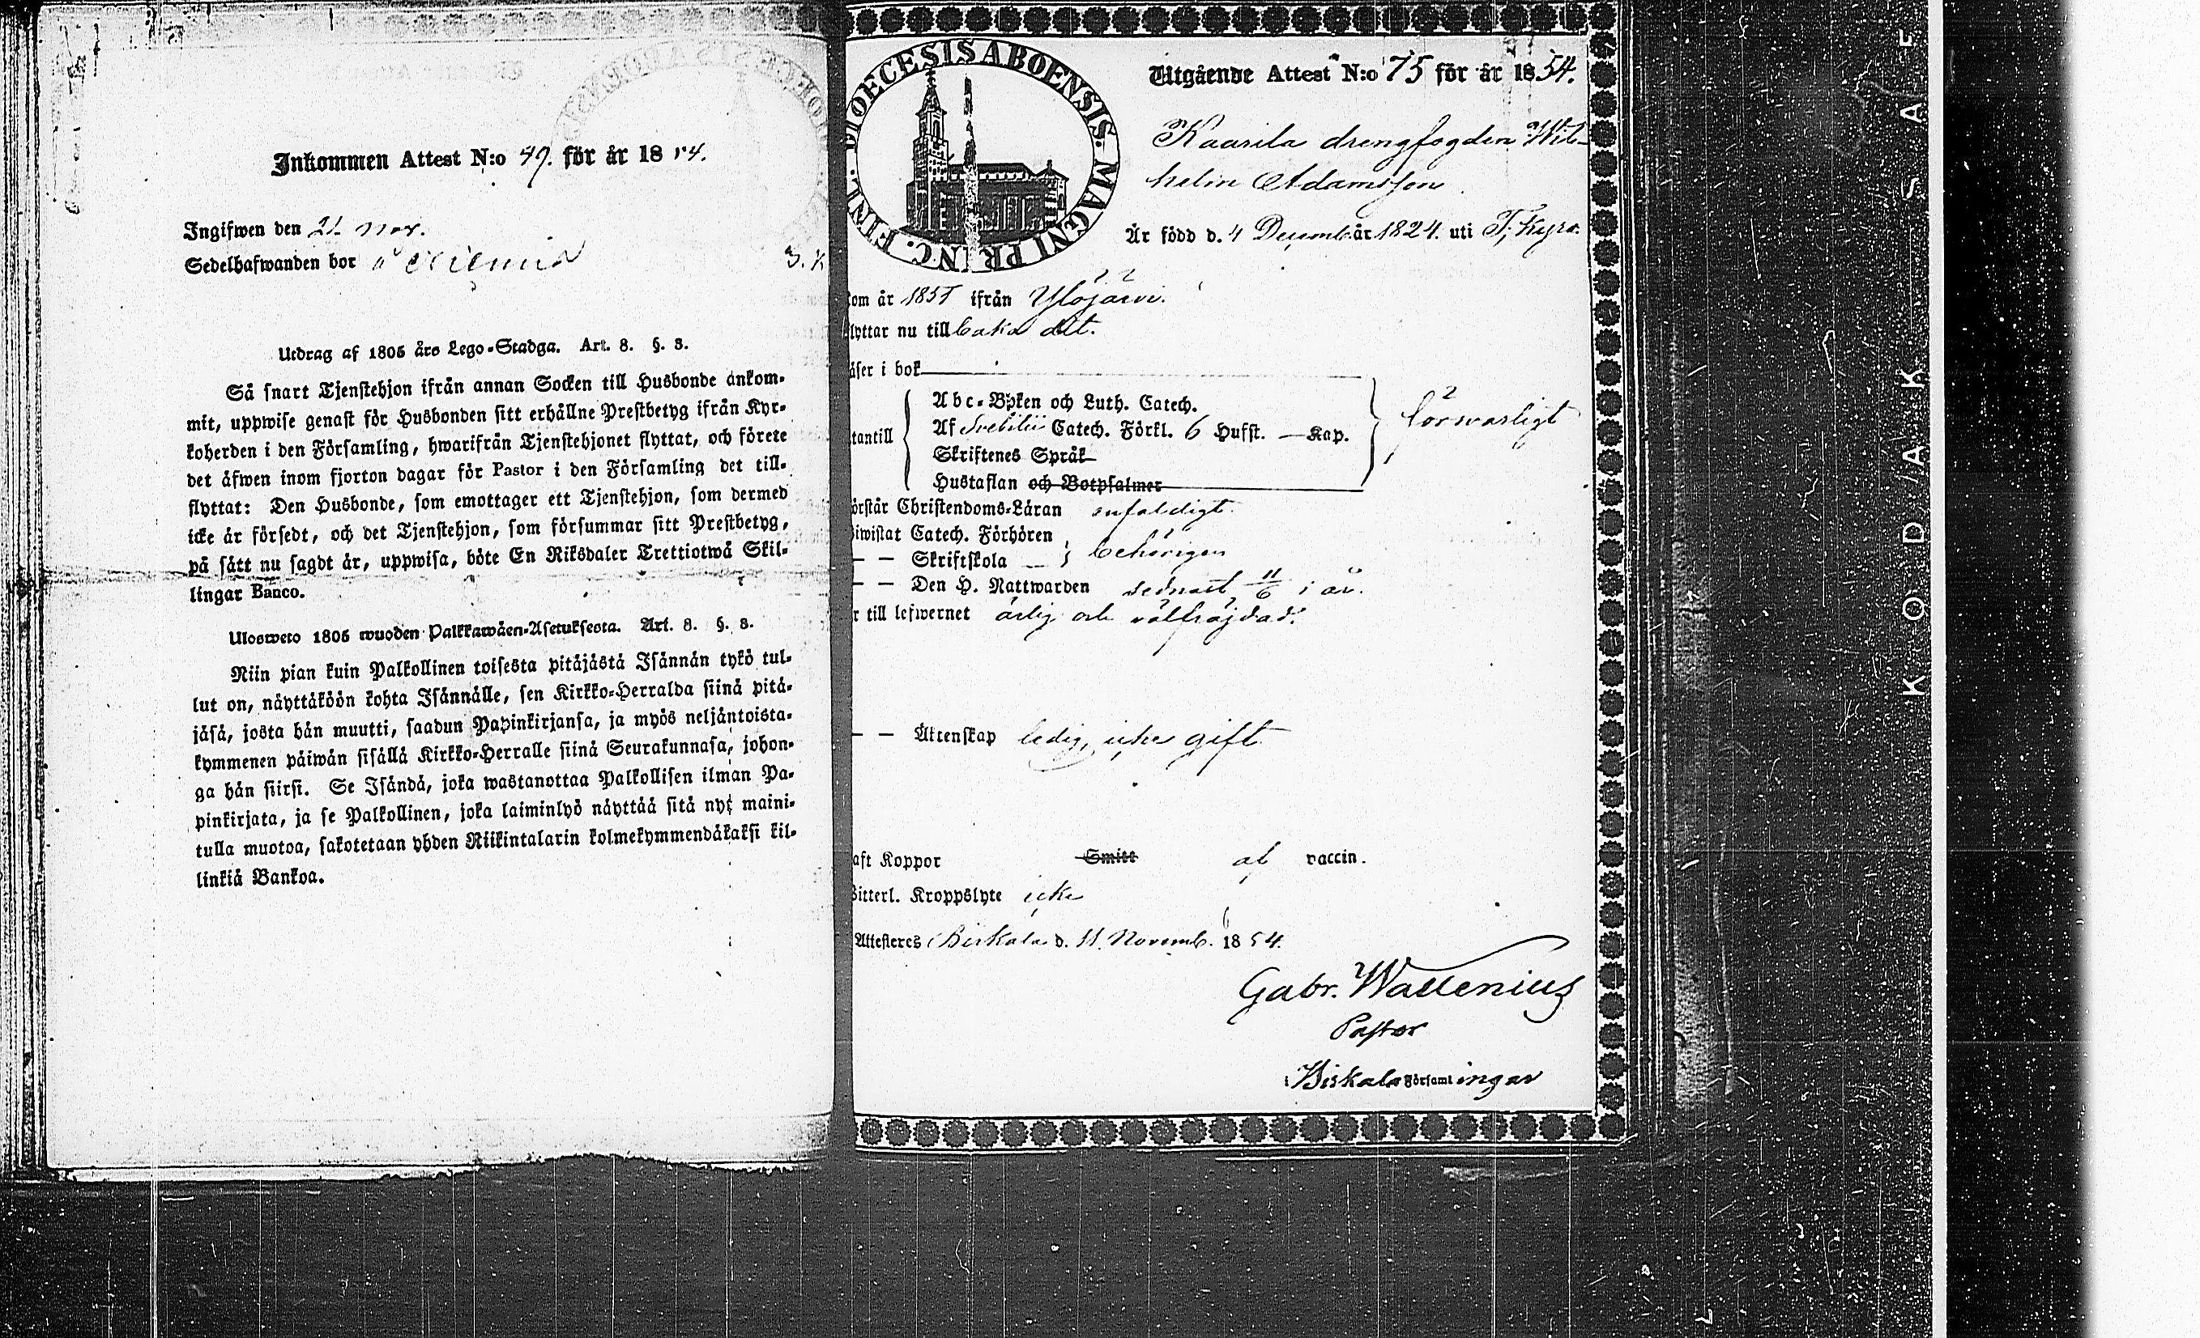 Inkommen Attest N:o 49. för år 1854.
Ingifwen den 21 nov.
Sedelhafwanden bor å
Utdrag af 1805 års Lego-Stadga. Art. 8. §. 8.
Så snart Tjenstehjon ifrån annan Socken till Husbonde ankom-
mit, uppwise genast för Husbonden sitt erhållne Prestbetyg ifrån Kyr-
koherden i den Församling, hwarifrån Tjenstehjonet flyttat, och förete
det äfwen inom fjorton dagar för Pastor i den Församling det till-
flyttat: Den Husbonde, som emottager ett Tjenstehjon, som dermed
icke är försedt, och det Tjenstehjon, som försummar sitt Prestbetyg,
på sätt nu sagdt är, uppwisa, böte En Riksdaler Trettiotwå Skil-
lingar Banco.
Ulosweto 1805 wuoden Palkkawäen-Asetuksesta. Art. 8. §. 8.
Niin pian kuin Palkollinen toisesta pitäjästä Isännän tykö tul-
lut on, näyttäköön kohta Isännälle, sen Kirkko-Herralda siinä pitä-
jäsä, josta hän muutti, saadun Papinkirjansa, ja myös neljäntoista-
kymmenen päiwän sisällä Kirkko-Herralle siinä Seurakunnasa, johon-
ga hän siirsi. Se Isändä, joka wastanottaa Palkollisen ilman Pa-
pinkirjata, ja se Palkollinen, joka laiminlyö näyttää sitä nyt maini-
tulla muotoa, sakotetaan yhden Riikintalarin kolmekymmendäkaksi kil-
linkiä Bankoa.
DIOECESIS ABOENSIS. MAGNI PRINC. FINL.
Utgående Attest N:o 75 för år 1854.
Kaarila drengfogden Wil-
helm Adamsson
Är född d. 4 Decemb år 1824. uti T. Kyro.
om år 1851 ifrån Ylöjärvi.
lyttar nu till baka dit.
äser i bok
Abc-Boken och Luth. Catech.
tantill Af Svebilii Catech. Förkl. 6 Hufst. — Kap. försvarligt
Skriftenes Språk
Hustaflan och Botpsalmer
örstår Christendoms-Läran enfaldigt.
iwistat Catech. Förhören
— — Skriftskola behörigen
— — Den H. Nattwarden sednast 11/6 i år.
r till lefwernet ärlig och välfräjdad.
— — Äktenskap ledig, icke gift
aft Koppor Smitt af vaccin.
itterl. Kroppslyte icke
Attesteres Birkala d. 11 Novemb. 1854.
Gabr. Wallenius
Pastor
i Birkala Församl ingar
KODAK SAFE